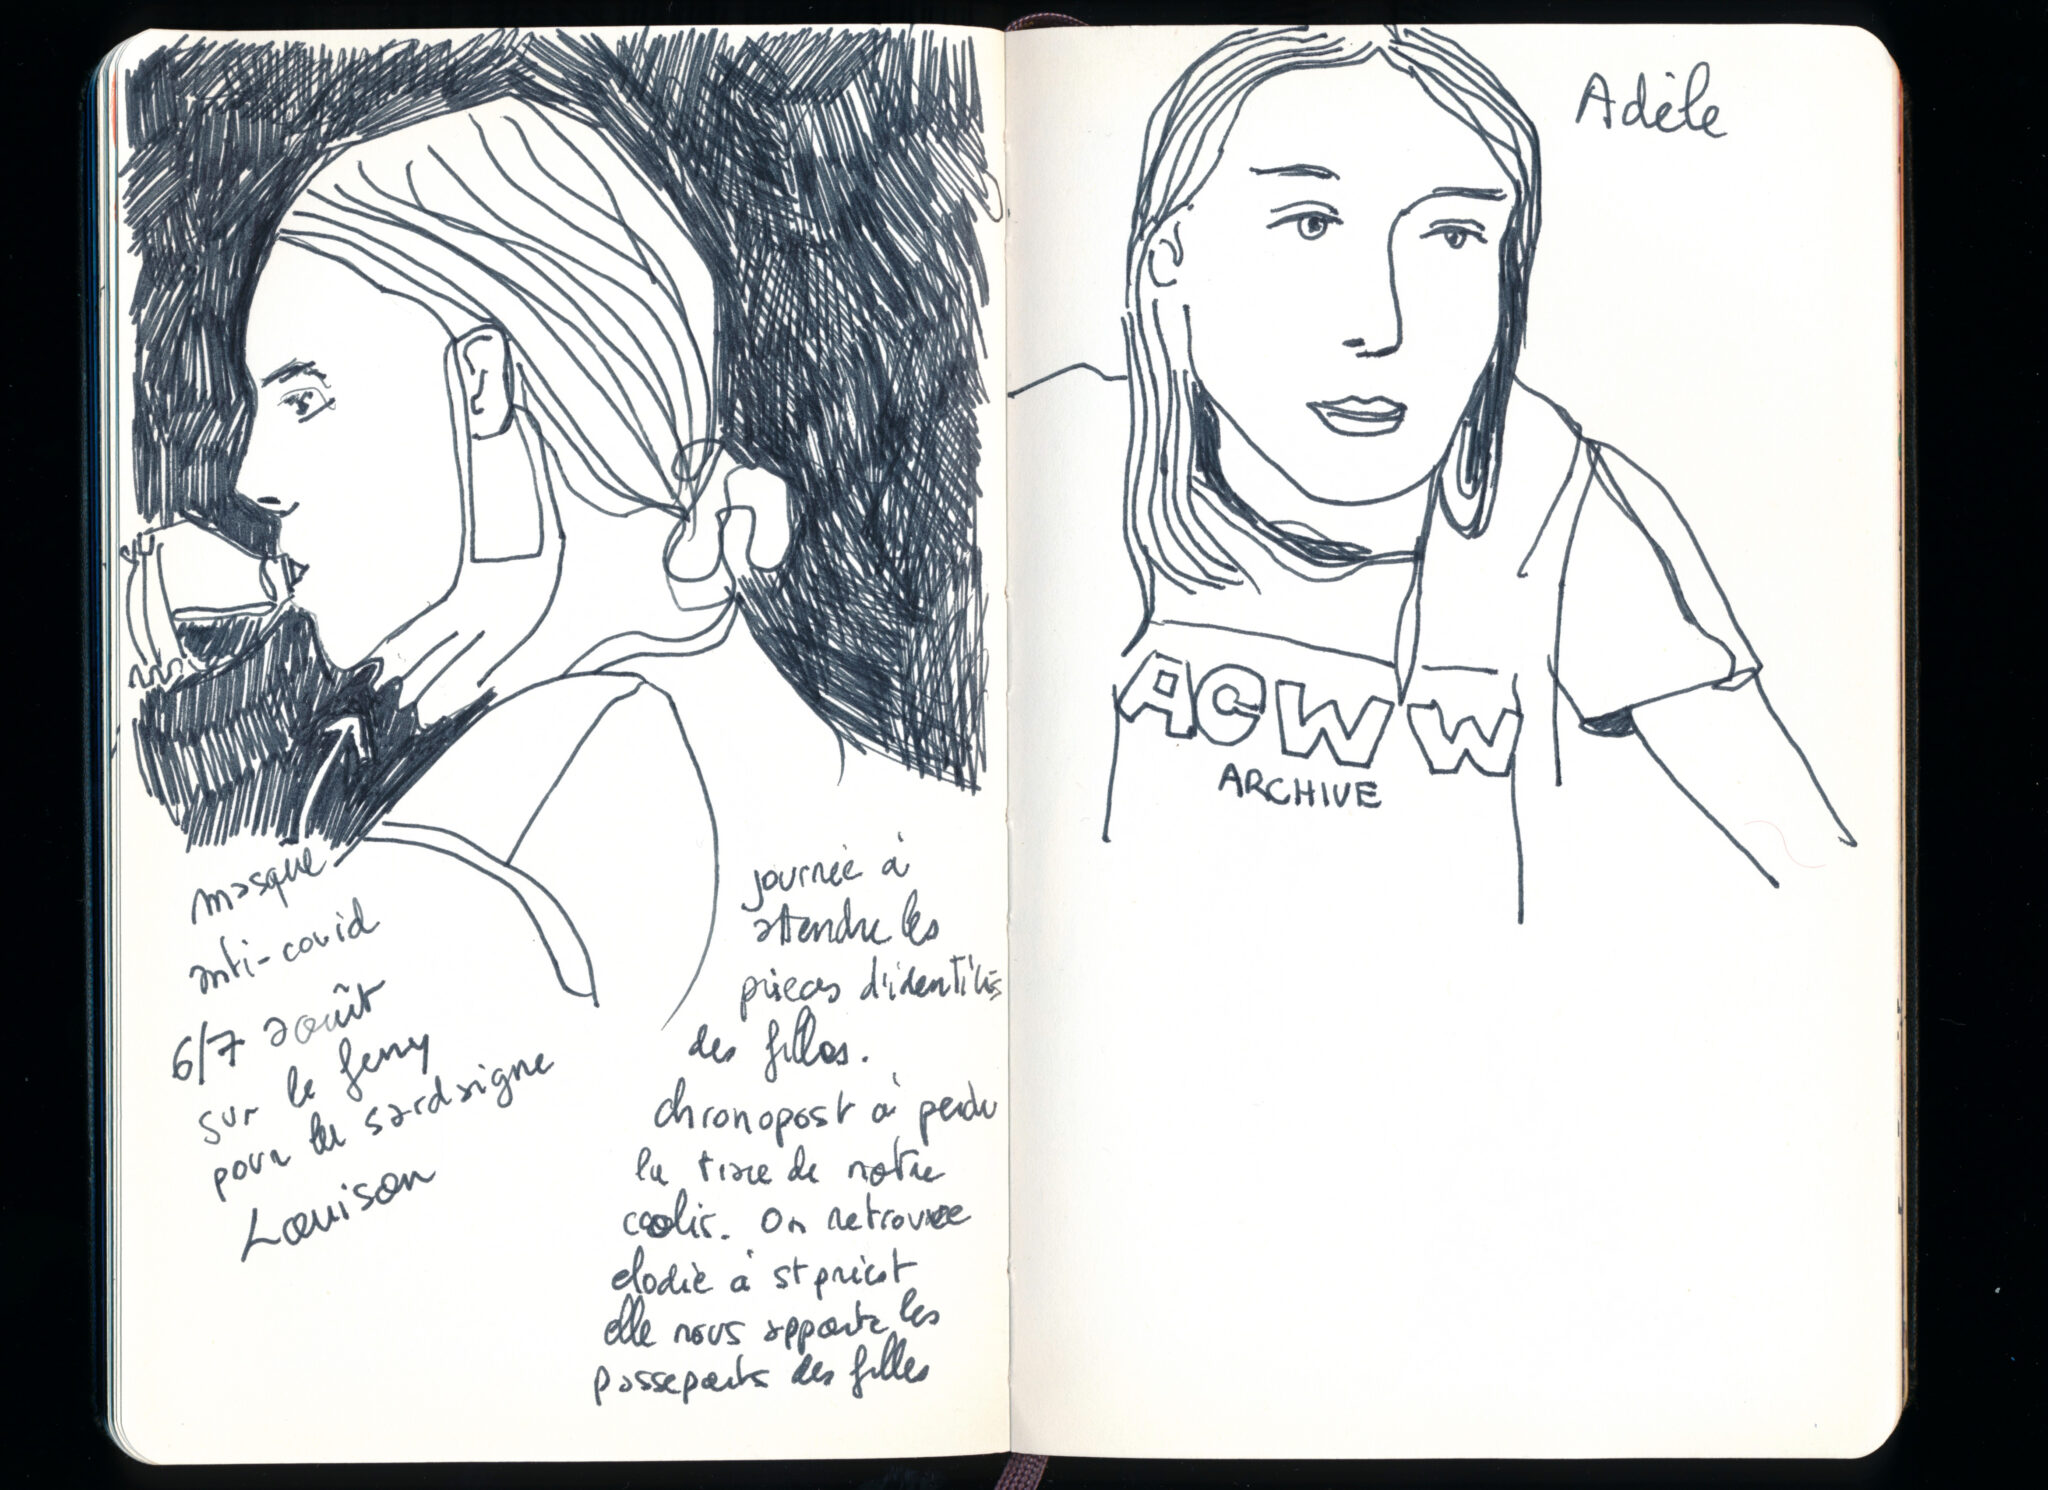 masque
anti-covid
6/7 août
sur le ferry
pour la sardaigne
Louison
journée à
attendre les
pièces d'identités
des filles.
chronopost à perdu
la trace de notre
colis. On retrouve
elodie à st priest
elle nous apporte les
passeports des filles
Adèle
ACWW
ARCHIVE